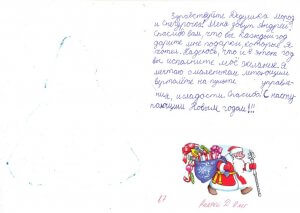 Здравствуйте Дедушка Мороз
и Снегурочка! Меня зовут Андрей.
Спасибо вам, что вы каждый год
дарите мне подарки, которые я
хотел. Надеюсь, что и в этот год
вы исполните моё желание. Я
мечтаю о маленьком летающем
вертолёте на пульте управле-
ния, и сладости. Спасибо! С насту-
пающим Новым годом!!!